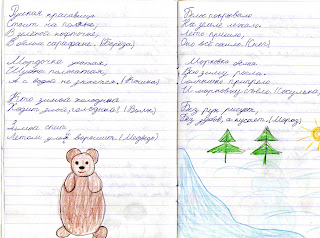 Русская красавица
Стоит на поляне,
В зелёной кофточке,
В белом сарафане. (Берёза)
Мордочка усатая,
Шубка полосатая,
А с водой не знается. (Кошка)
Кто зимой холодной
Ходит злой, голодный? (Волк)
Зимой спит,
Летом ульи ворошит. (Медведь)
Белое покрывало
На земле лежало.
Лето пришло,
Оно всё сошло. (Снег)
Морковка бела
Всю зиму росла.
Солнышко пригрело
И морковку съело. (Сосулька)
Без рук рисует,
Без зубов, а кусает. (Мороз)